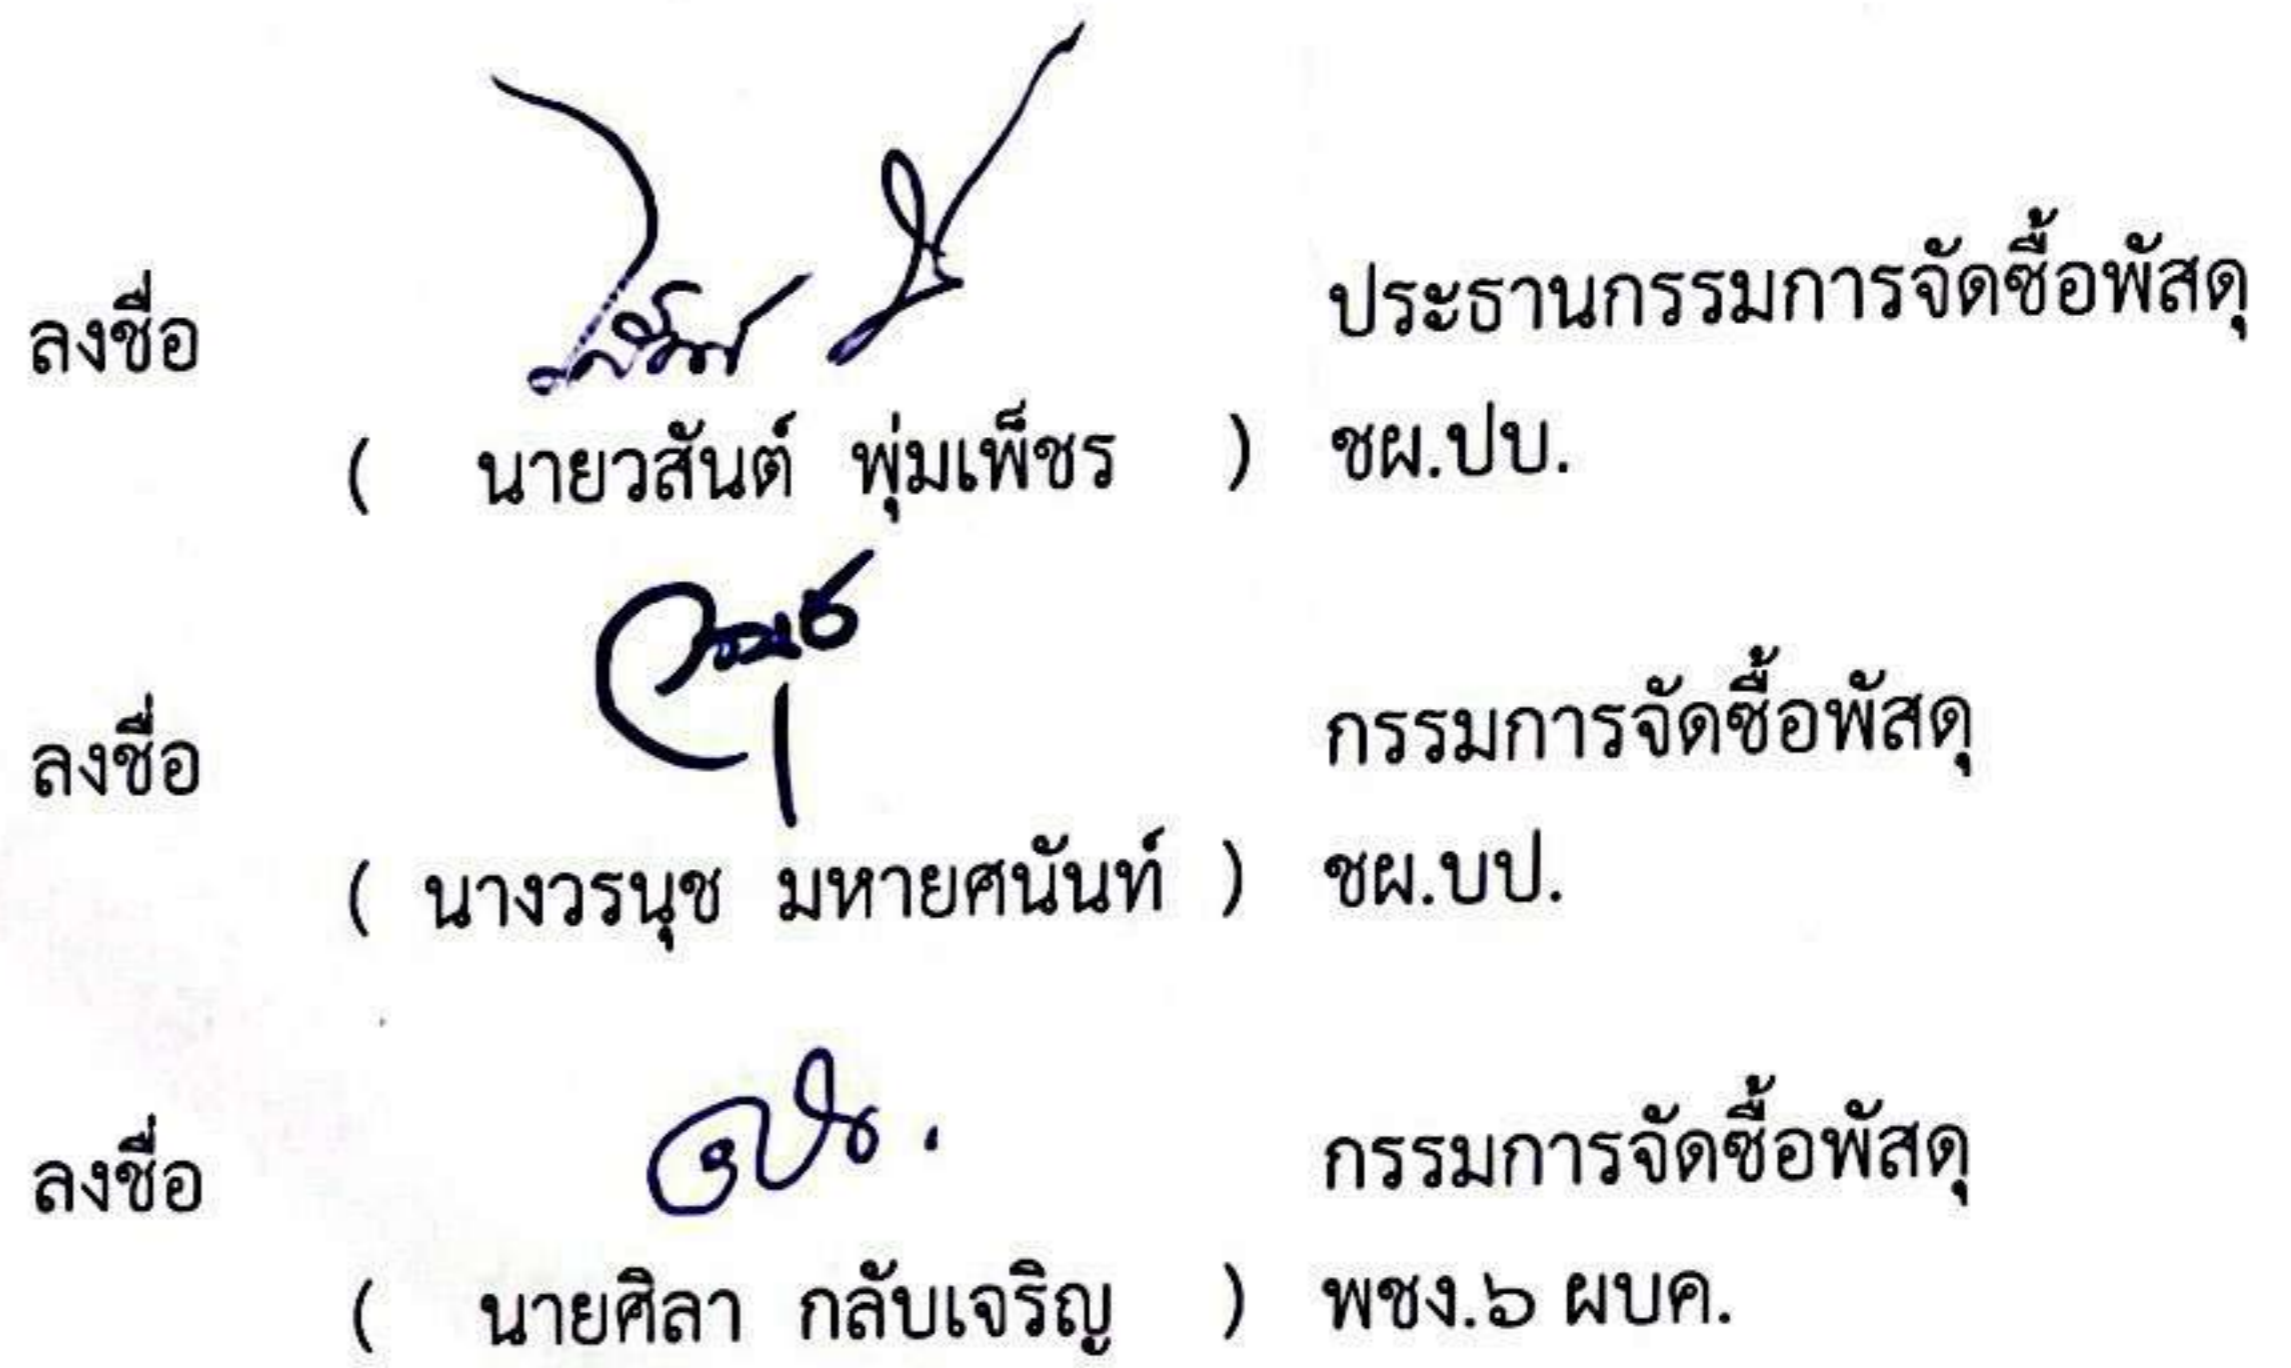 ลงชื่อ ประธานกรรมการจัดซื้อพัสดุ
( นายวสันต์ พุ่มเพ็ชร ) ชผ.ปบ.
ลงชื่อ กรรมการจัดซื้อพัสดุ
( นางวรนุช มหายศนันท์ ) ชผ.บป.
ลงชื่อ กรรมการจัดซื้อพัสดุ
( นายศิลา กลับเจริญ ) พชง.๖ ผบค.